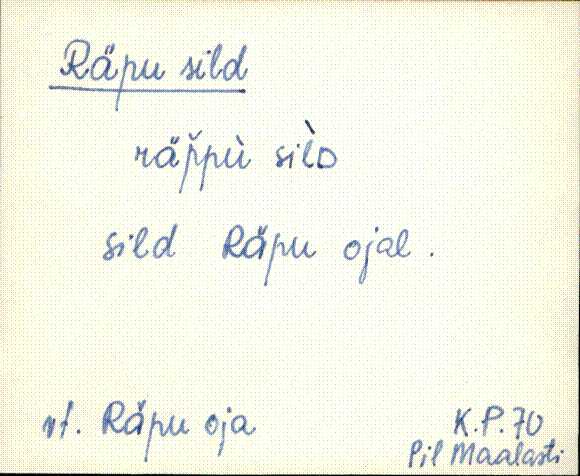 Räpu sild
räp̌pù sil̀D
sild Räpu ojal.
vt. Räpu oja
K.P. 70
Pil Maalasti